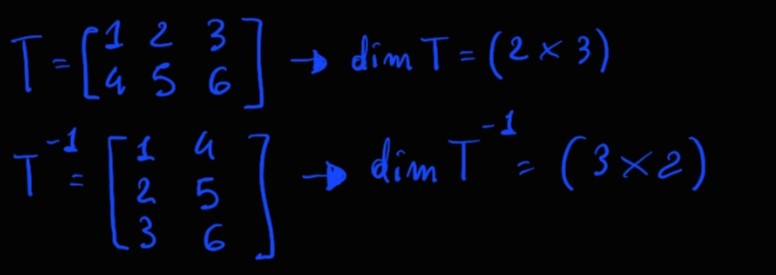 T = [ 1 2 3
4 5 6 ] → dim T = (2 × 3)
T⁻¹ = [ 1 4
2 5
3 6 ] → dim T⁻¹ = (3 × 2)